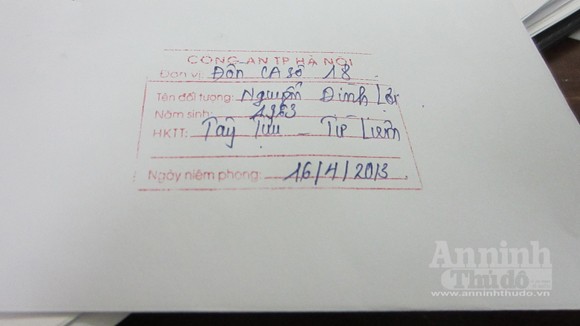 CÔNG AN TP HÀ NỘI
Đơn vị: Đồn CA số 18
Tên đối tượng: Nguyễn Đình Lợi
Năm sinh: 1983
HKTT: Tây Tựu - Từ Liêm
Ngày niêm phong: 16/4/2013
An ninh
Thủ đô
www.anninhthudo.vn